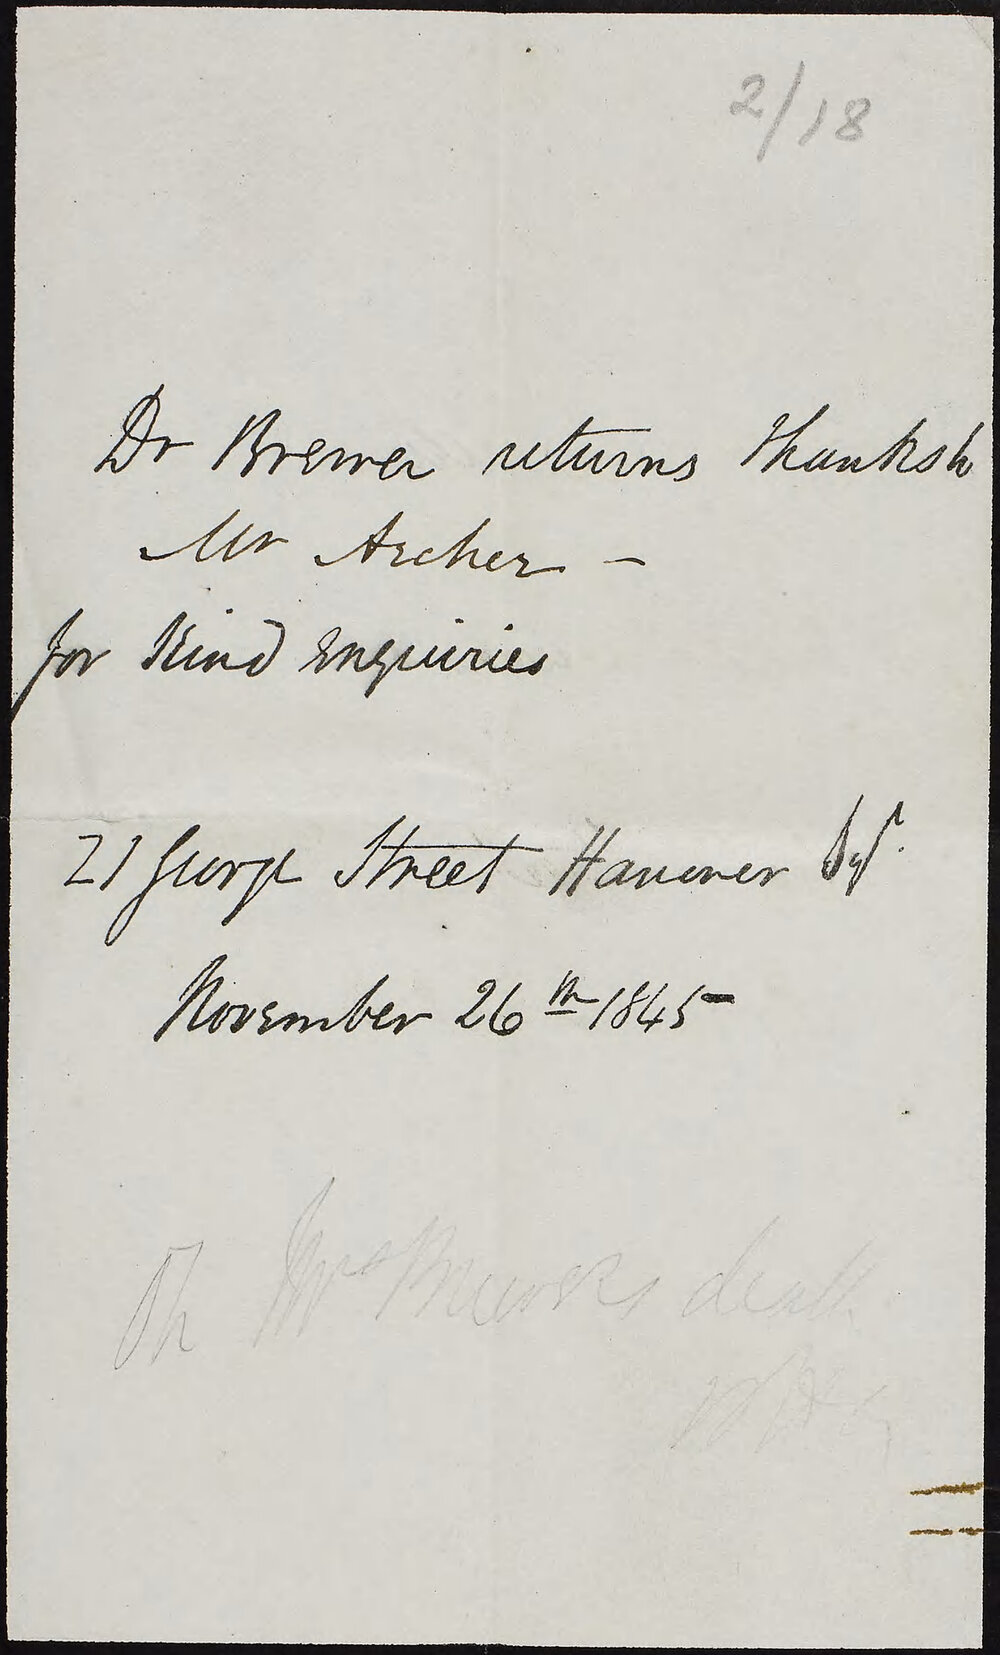 2/18
Dr Brewer returns thanks to
Mr Archer —
for Kind enquiries
21 George Street Hanover Sqr.
November 26th 1845
On Mrs Brewers death